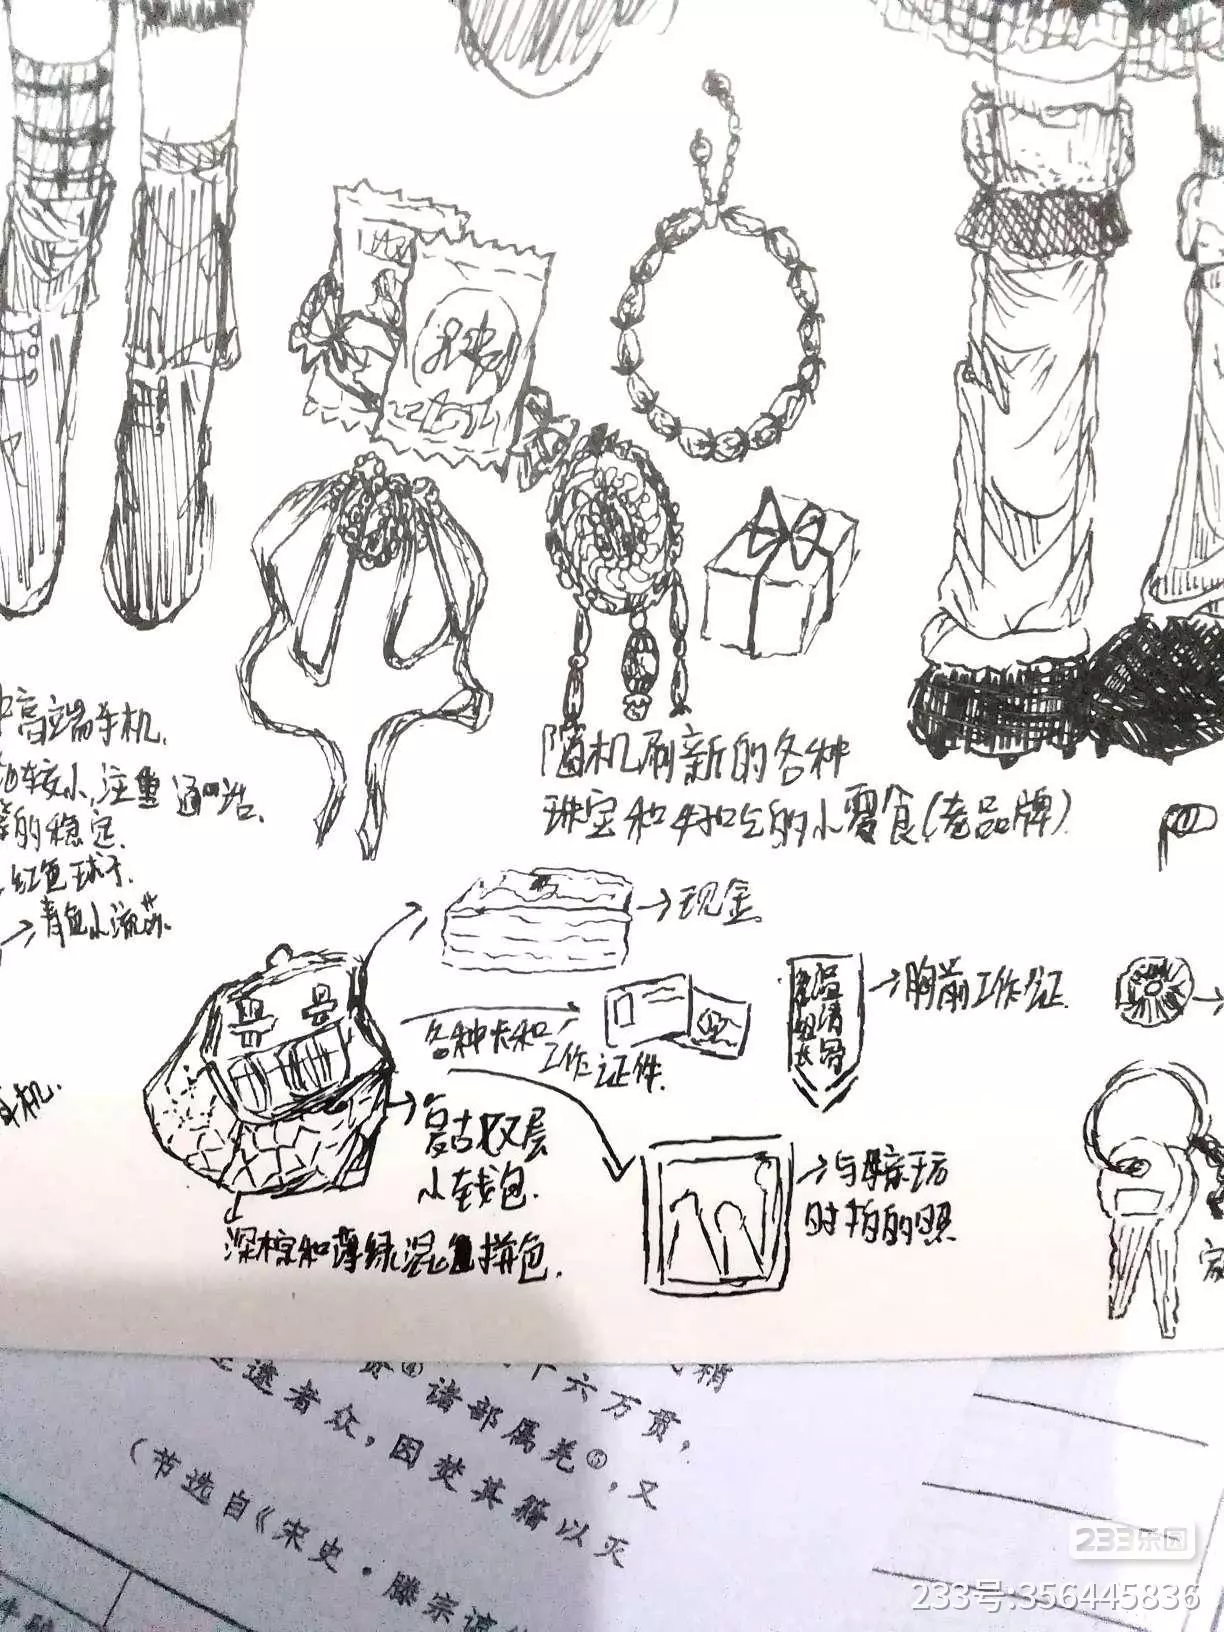 高端手机.
较小,注重通话.
的稳定.
红色球子.
→青色小流苏.
随机刷新的各种
珠宝和好吃的小零食(老品牌)
→现金
各种卡和
工作证件.
→胸前工作证.
复古双层
小钱包.
深棕和薄绿混色拼包.
时拍的照
机.
家
六万贯,
诸部属羌⑤,又
逮者众,因焚其籍以灭
(节选自《宋史·滕宗谅
233乐园
233号:356445836